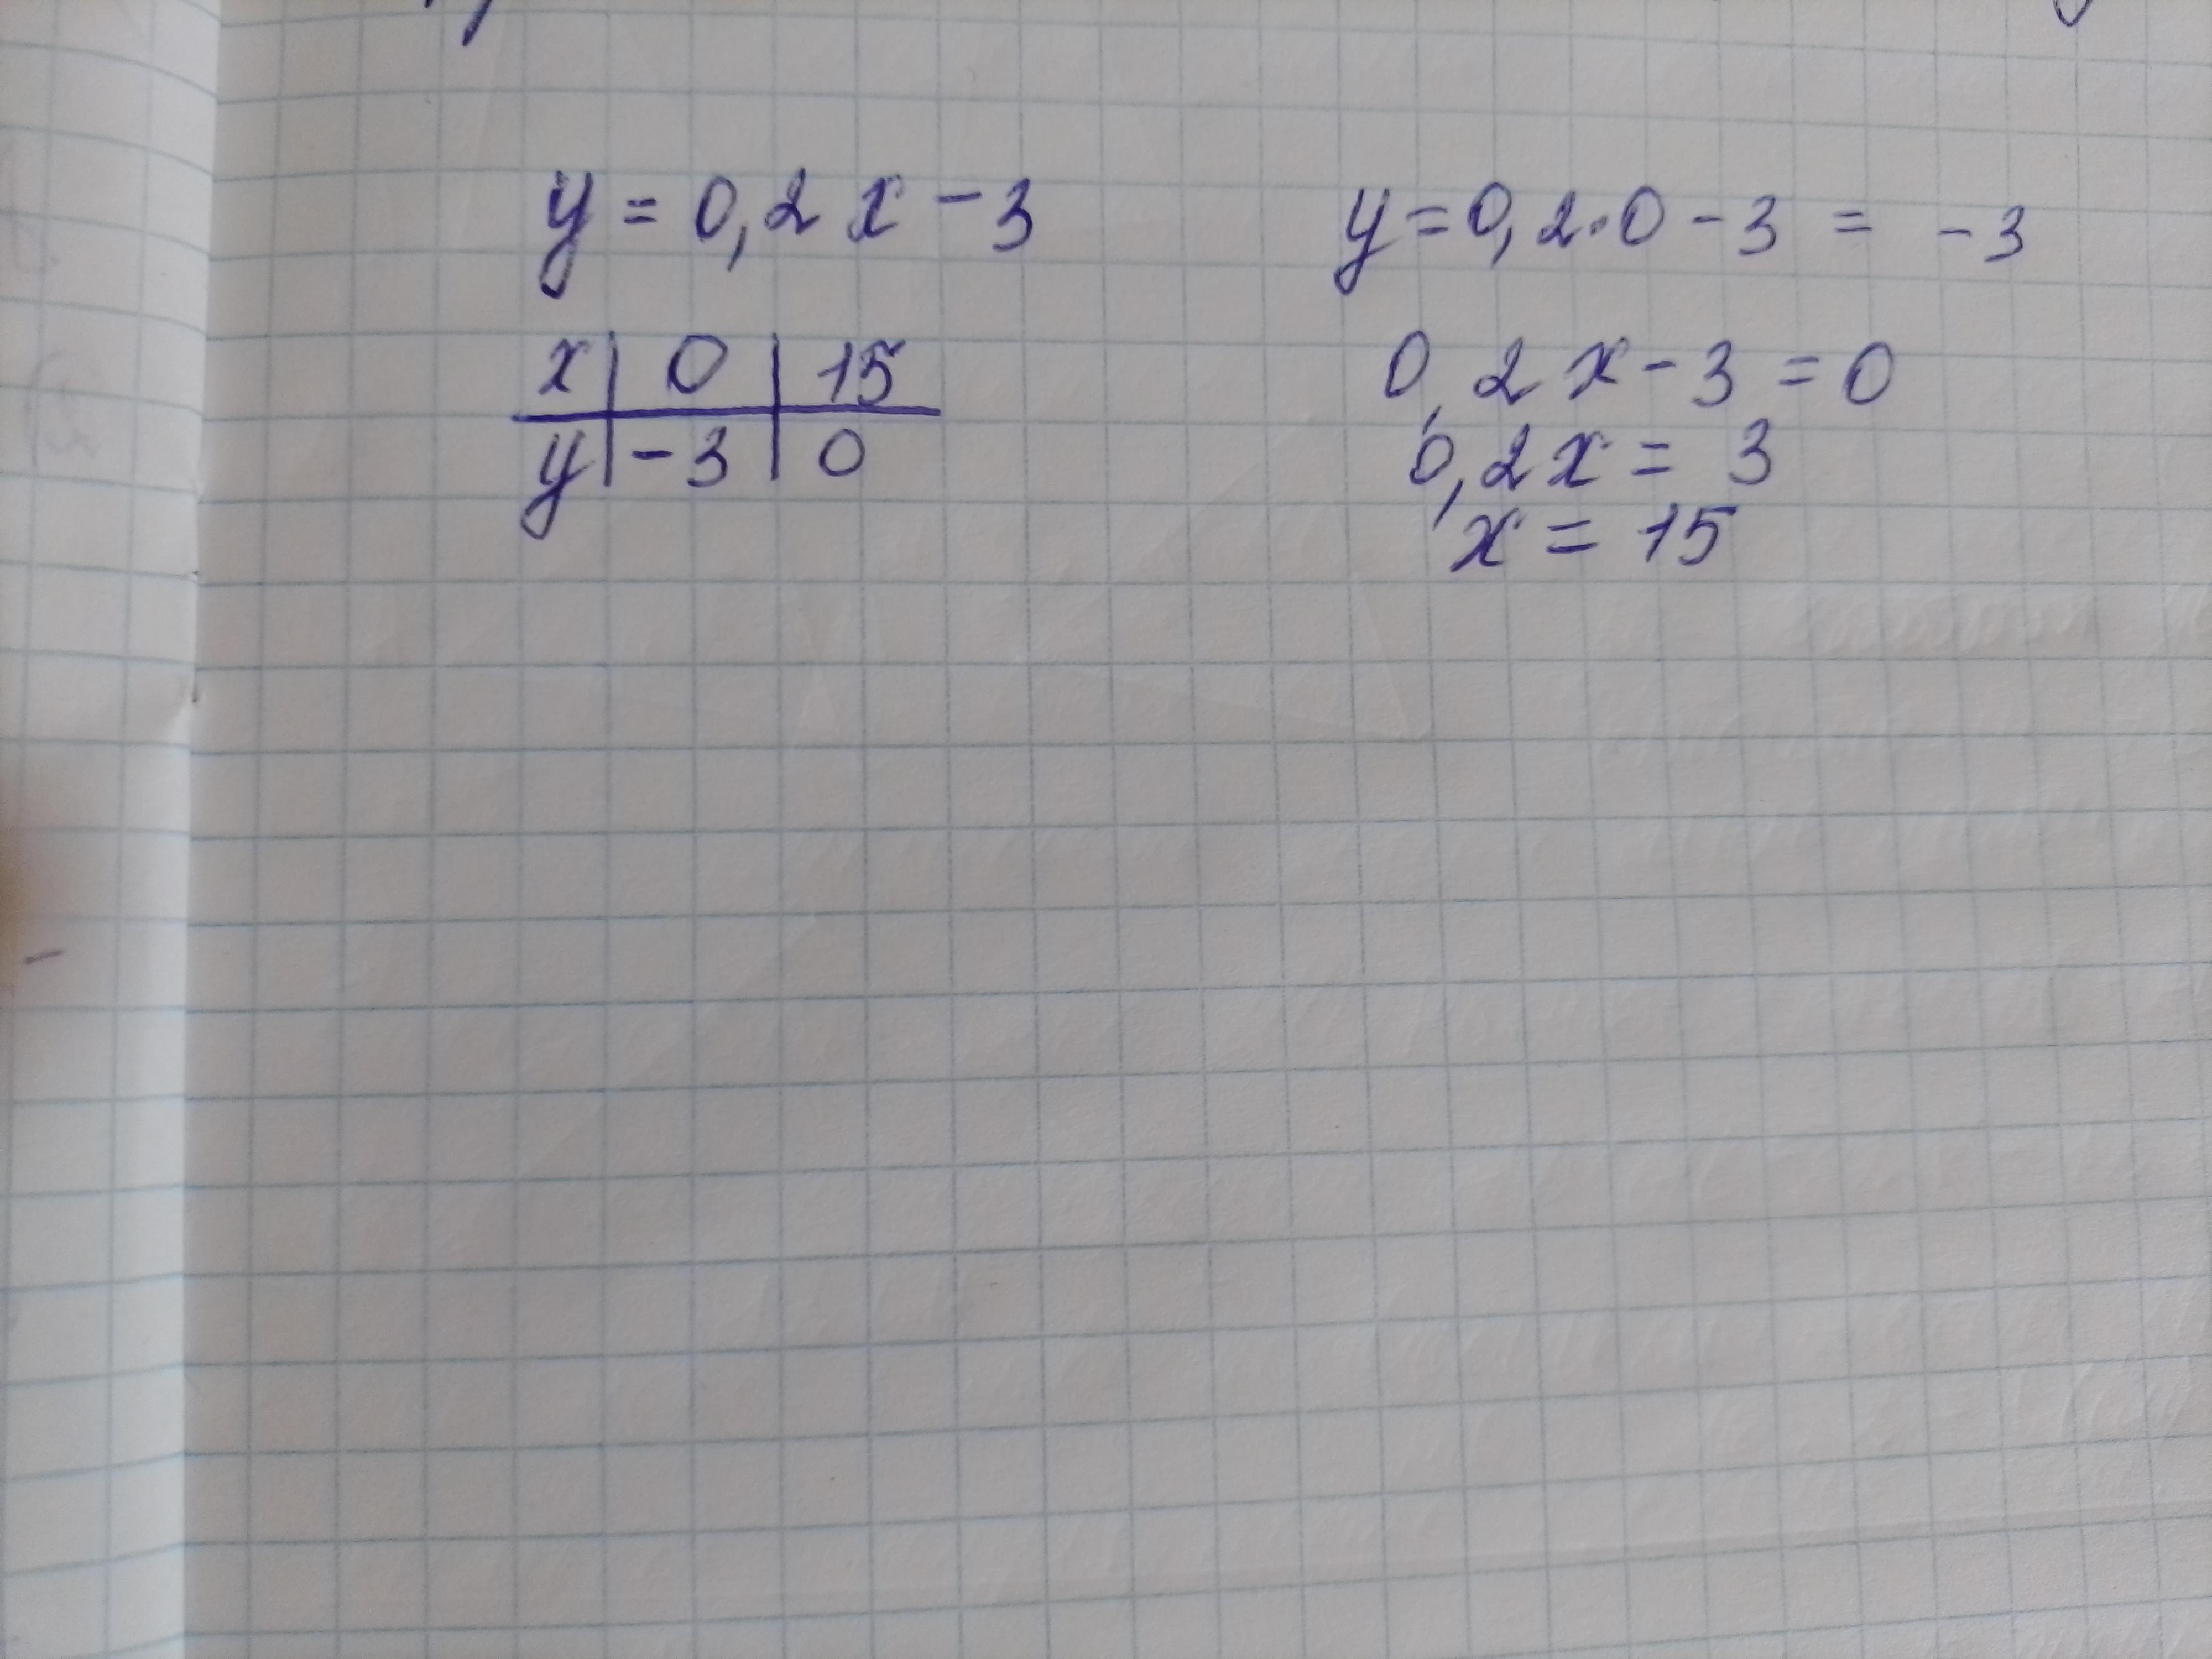 y = 0,2 x - 3
x | 0 | 15
y | -3 | 0
y = 0,2·0 - 3 = -3
0,2 x - 3 = 0
0,2x = 3
x = 15